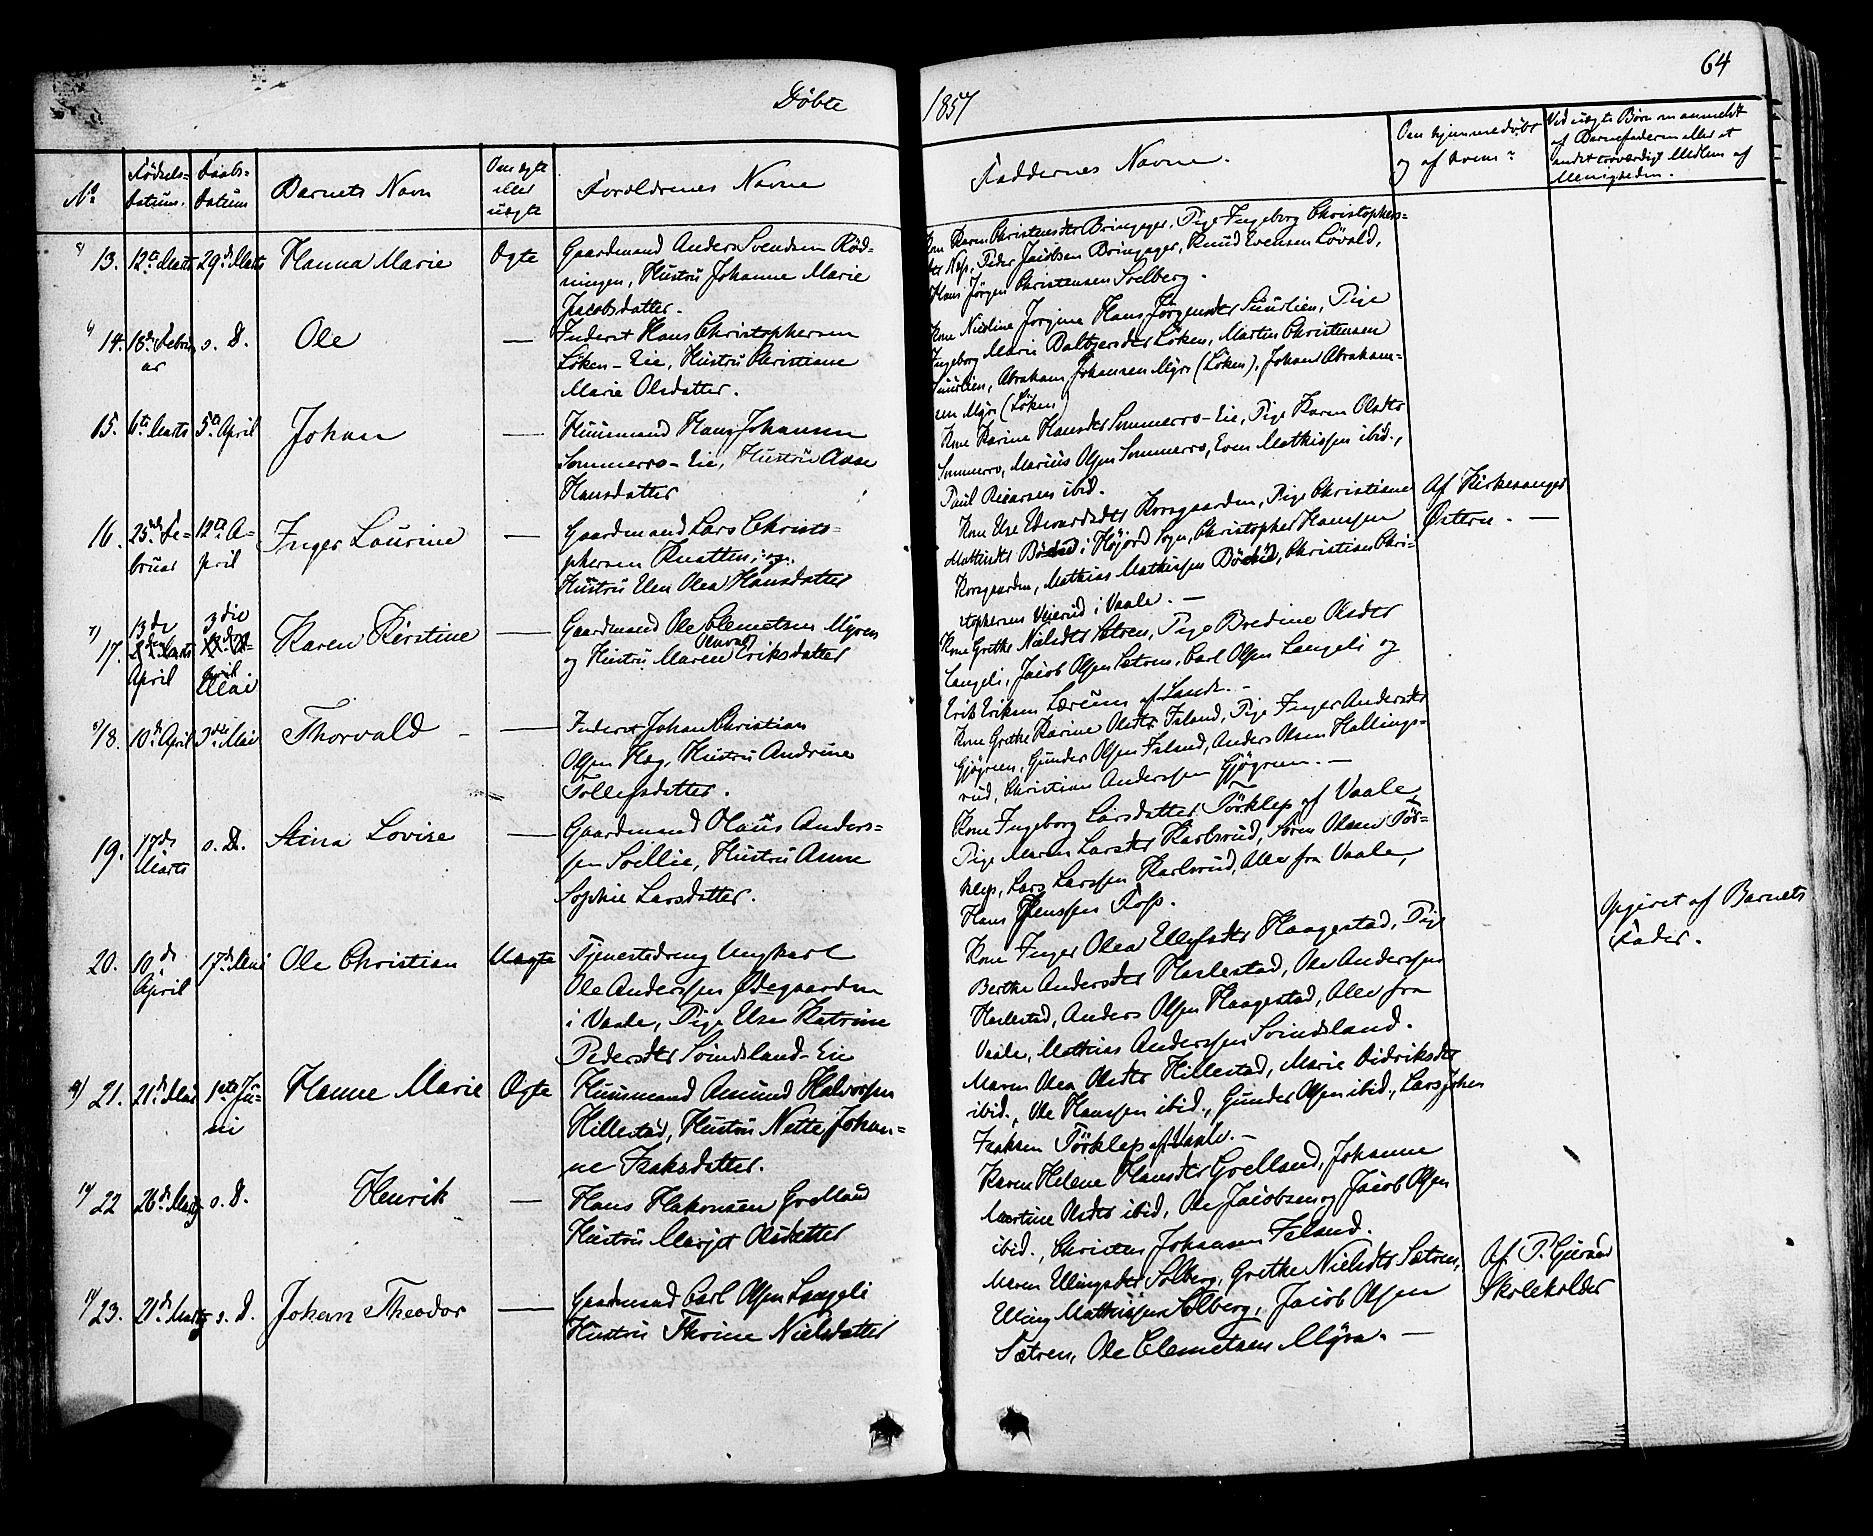 Døbte
1857
64
No
Fødsels-
datum.
Daabs-
datum
Barnets Navn
Om ægte
eller
uægte
Forældrenes Navne
Faddernes Navne.
Om hjemmedøbt
og af hvem?
Ved uægte Børn om anmeldt
af Barnefaderen eller et
andet troværdigt Medlem af
Menigheden.
13. 12te Marts 29de Marts Hanna Marie Ægte Gaardmand Anders Svendsen Rød-
ningen, Hustru Johanne Marie
Jacobsdatter.
Kone Karen Christensdtr Bringager, Pige Ingeborg Christophers-
dtr Nes, Peder Jacobsen Bringager, Knud Evensen Løvald,
Hans Jørgen Christensen Solberg.
14. 18de Febru- s. D. Ole — Inderst Hans Christophersen
ar
Løken-Eie, Hustru Christiane
Marie Olsdatter.
Kone Nicoline Jorgine Hans Jørgensdtr Suurlien, Pige
Ingeborg Marie Baltzersdtr Løken, Martin Christensen
Suurlien, Abraham Johansen Myra (Løken), Johan Abraham-
sen Myra (Løken)
15. 6te Marts 5te April Johan — Huusmand Hans Johansen
Sommerro-Eie, Hustru Anne
Hansdatter
Kone Karine Hansdtr Sommerro-Eie, Pige Karen Olsdtr
Sommerro, Marius Olsen Sommerro, Even Mathissen ibid.,
Paul ibid.
16. 25de Fe- 12te A- Inger Laurine — Gaardmand Lars Christo-
bruar pril
phersen Knatten, og
Hustru Elen Olea Hansdatter
Kone Else Edvardsdtr Korsgaarden, Pige Christiane
Mathisdtr i Høijord Sogn, Christopher Hansen
Korsgaarden, Mathias Mathissen, Christian Chri-
stophersen Veierud i Vaale. —
Af Kirkesanger
Østern. —
17. 13de April 3die Mai Karen Kirstine — Gaardmand Ole Clemetsen Myren
og Hustru Maren Eriksdatter
Kone Grethe Nielsdtr Sætren, Pige Bredine Olsdtr
Langeli, Jacob Olsen Sætren, Carl Olsen Langeli og
Erik Eriksen Lærum af Sande. —
18. 10de April 3die Mai Thorvald — Inderst Johan Christian
Olsen Hag, Hustru Andrine
Tollefsdatter.
Kone Grethe Karine Olsdtr Island, Pige Inger Andersdtr
Gjøgreen, Gunder Olsen Island, Anders Olsen Hallings-
rud, Christian Anderssen Gjøgreen. —
19. 17de s. D. Stina Lovise — Gaardmand Olaus Anders-
Marts
sen Sollie, Hustru Anne
Sophie Larsdatter.
Kone Ingeborg Larsdatter Tørklep af Vaale,
Pige Maren Larsdtr Karlsrud, Søren Olsen Tør-
klep, Lars Larssen Karlsrud, Alle fra Vaale,
Hans Jenssen Ros.
20. 10de 17de Mai Ole Christian Uægte Tjenestedreng Ungkarl
April
Ole Anderssen Ødegaarden
i Vaale, Pige Else Katrine
Pedersdtr Svindsland-Eie
Kone Inger Olea Ellefsdtr Haagestad, Pige
Berthe Andersdtr Harlestad, Ole Anderssen
Harlestad, Anders Olsen Haagestad, Alle fra
Vaale, Mathias Anderssen Svindsland.
Opgivet af Barnets
Fader.
21. 21de Mai 1ste Ju- Hanne Marie Ægte Huusmand Amund Halvorsen
ni
Hillestad, Hustru Nette Johan-
ne Isaksdatter.
Maren Olea Olsdtr Hillestad, Marie Didriksdtr
ibid., Ole Hanssen ibid., Gunder Olsen ibid., Lars Johan
Isaksen Tørklep af Vaale. —
22 26de Marts s. D. Henrik — Hans Hakonsen Grelland
Hustru Margit Olsdatter
Karen Helene Hansdtr Grelland, Johanne
Martine Olsdtr ibid, Ole Jacobsen og Jacob Olsen
ibid., Christen Johansen Island.
23. 21de Marts s. D. Johan Theodor — Gaardmand Carl Olsen Langeli
Hustru Thrine Nielsdatter
Maren Ellingsdtr Solberg, Grethe Nielsdtr Sætren,
Elling Mathissen Solberg, Jacob Olsen
Sætren, Ole Clemetsen Myra. —
Af P.
Skoleholder